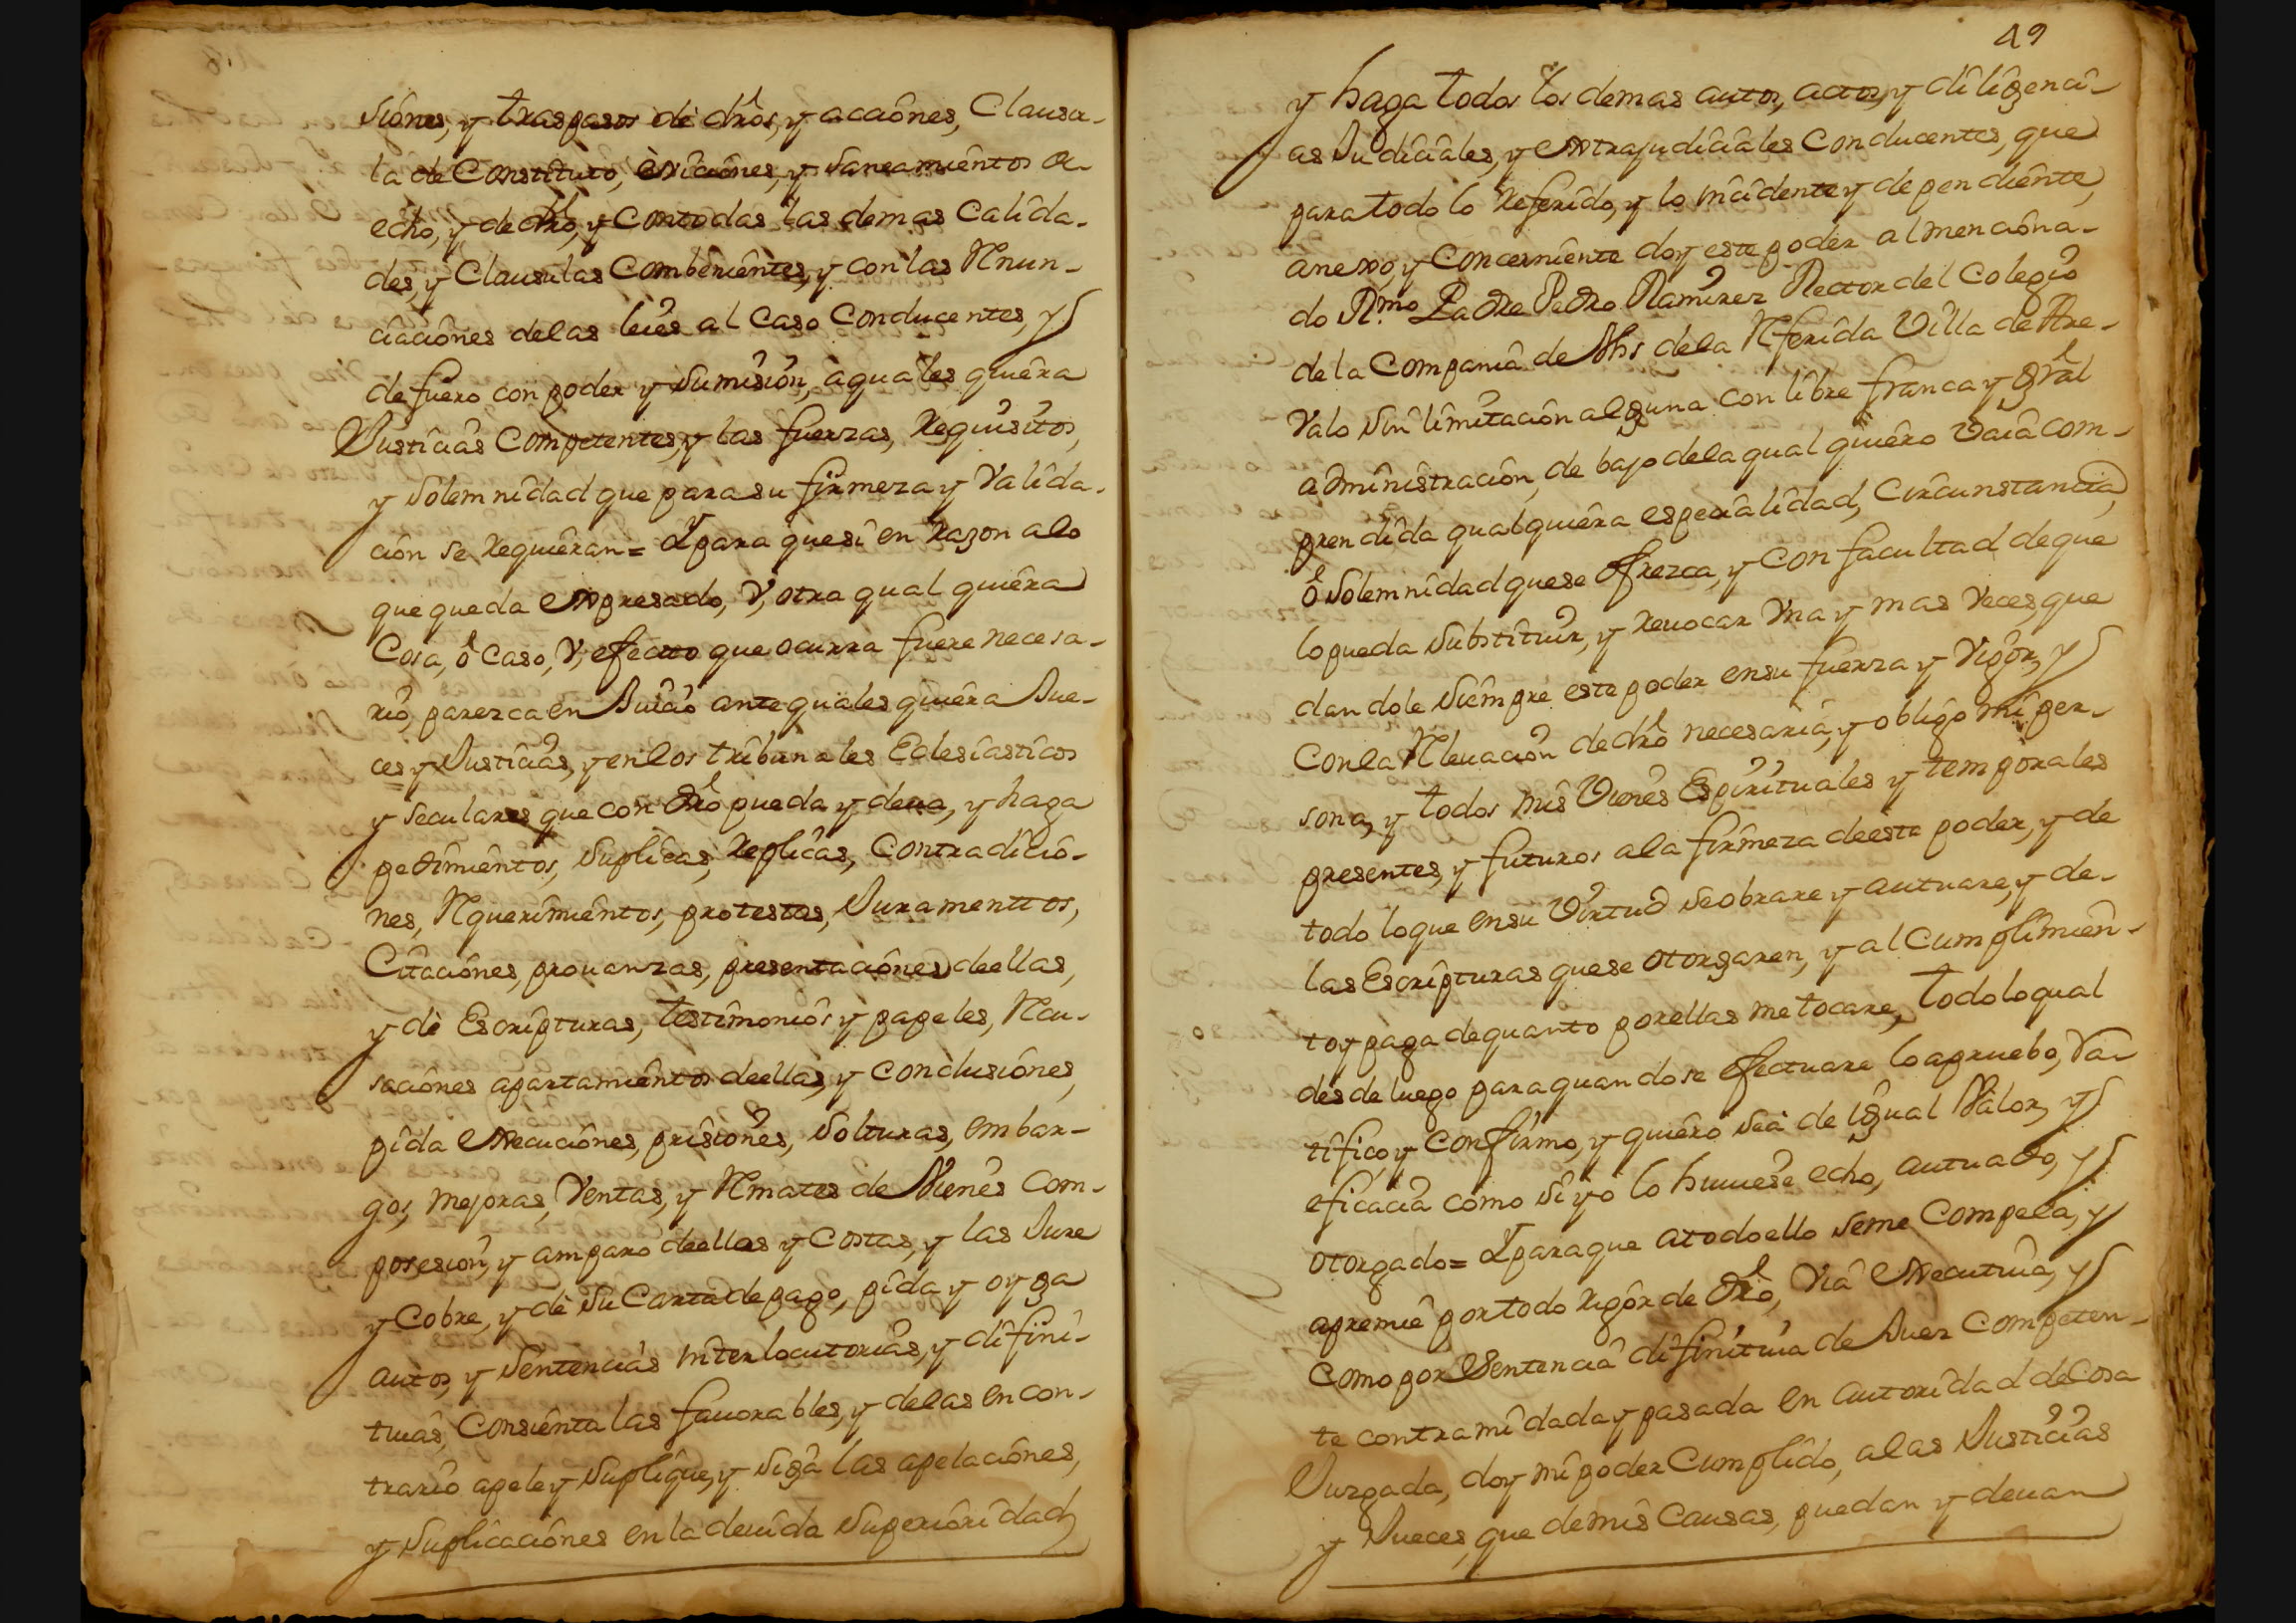 siones, y traspasos de dros, y acciones, Clausu-
la de Constituto, eviciones, y saneamientos a
echo, y de dro, y con todas las demas Calida-
des, y Clausulas Combenientes, y con las Renun-
ciaciones de las leies al Caso Conducentes, y
de fuero con poder y sumision, aquales quiera
Justicias Competentes, y las fuerzas, Requisitos,
y solemnidad que para su firmeza y Valida-
cion se Requieran= Y para que si en Razon a lo
que queda expresado, V, otra qual quiera
Cosa, ô Caso, V, efecto que ocurra fuere necesa-
rio, parezca en Juicio ante quales quiera Jue-
ces y Justicias, y en los tribunales Eclesiasticos
y seculares que con dro pueda y deua, y haga
pedimientos, suplicas, Replicas, Contradicio-
nes, Requerimientos, protestas, Juramenttos,
Citaciones, prouanzas, presentaciones de ellas,
y de Escripturas, testimonios y papeles, Recu-
saciones apartamientos de ellas, y conclusiones,
pida execuciones, prisiones, solturas, embar-
gos, mejoras, Ventas, y Remates de Vienes Com-
posesion, y amparo de ellos y Costas, y las Jure
y Cobre, y de su Carta de pago, pida y oyga
autos, y sentencias interlocutorias, y difini-
tiuas, Consienta las fauorables, y de las en con-
trario apele y suplique, y siga las apelaciones,
y suplicaciones en la deuida superioridad,
49
y haga todos los demas autos, actos, y diligenci-
as Judiciales, y extrajudiciales Conducentes, que
para todo lo Referido, y lo incidente y dependiente,
anexo, y Concerniente doy este poder al menciona-
do R.mo Padre Pedro Ramirez Rector del Colegio
de la Compania de Jhs de la Referida Villa de Are-
valo sin limitacion alguna con libre franca y gral
administracion, de bajo de la qual quiero Vaia com-
prendida qualquiera especialidad, Circunstancia,
ô solemnidad que se ofrezca, y con facultad de que
lo pueda substituir, y Reuocar Vna y mas Veces, que
dandole siempre este poder en su fuerza y Vigor, y
Con la Releuacion de dro necesaria, y obligo mi per-
sona, y todos mis Vienes Espirituales y temporales
presentes, y futuros a la firmeza de este poder, y de
todo lo que en su Virtud se obrare y autuare, y de-
las Escripturas que se otorgaren, y al Cumplimien-
to y paga de quanto por ellas me tocare, todo lo qual
desde luego para quando se efectuare lo apruebo, Ra-
tifico, y Confirmo, y quiero sea de igual Valor, y
eficacia como si yo lo huuiese echo, autuado, y
otorgado= Y para que a todo ello se me Compela, y
apremie por todo rigor de dro, Via executiua, y
Como por Sentencia difinitiua de Juez Competen-
te contra mi dada y pasada en autoridad de Cosa
Juzgada, doy mi poder Cumplido, a las Justicias
y Jueces, que de mis Causas, puedan y deuan